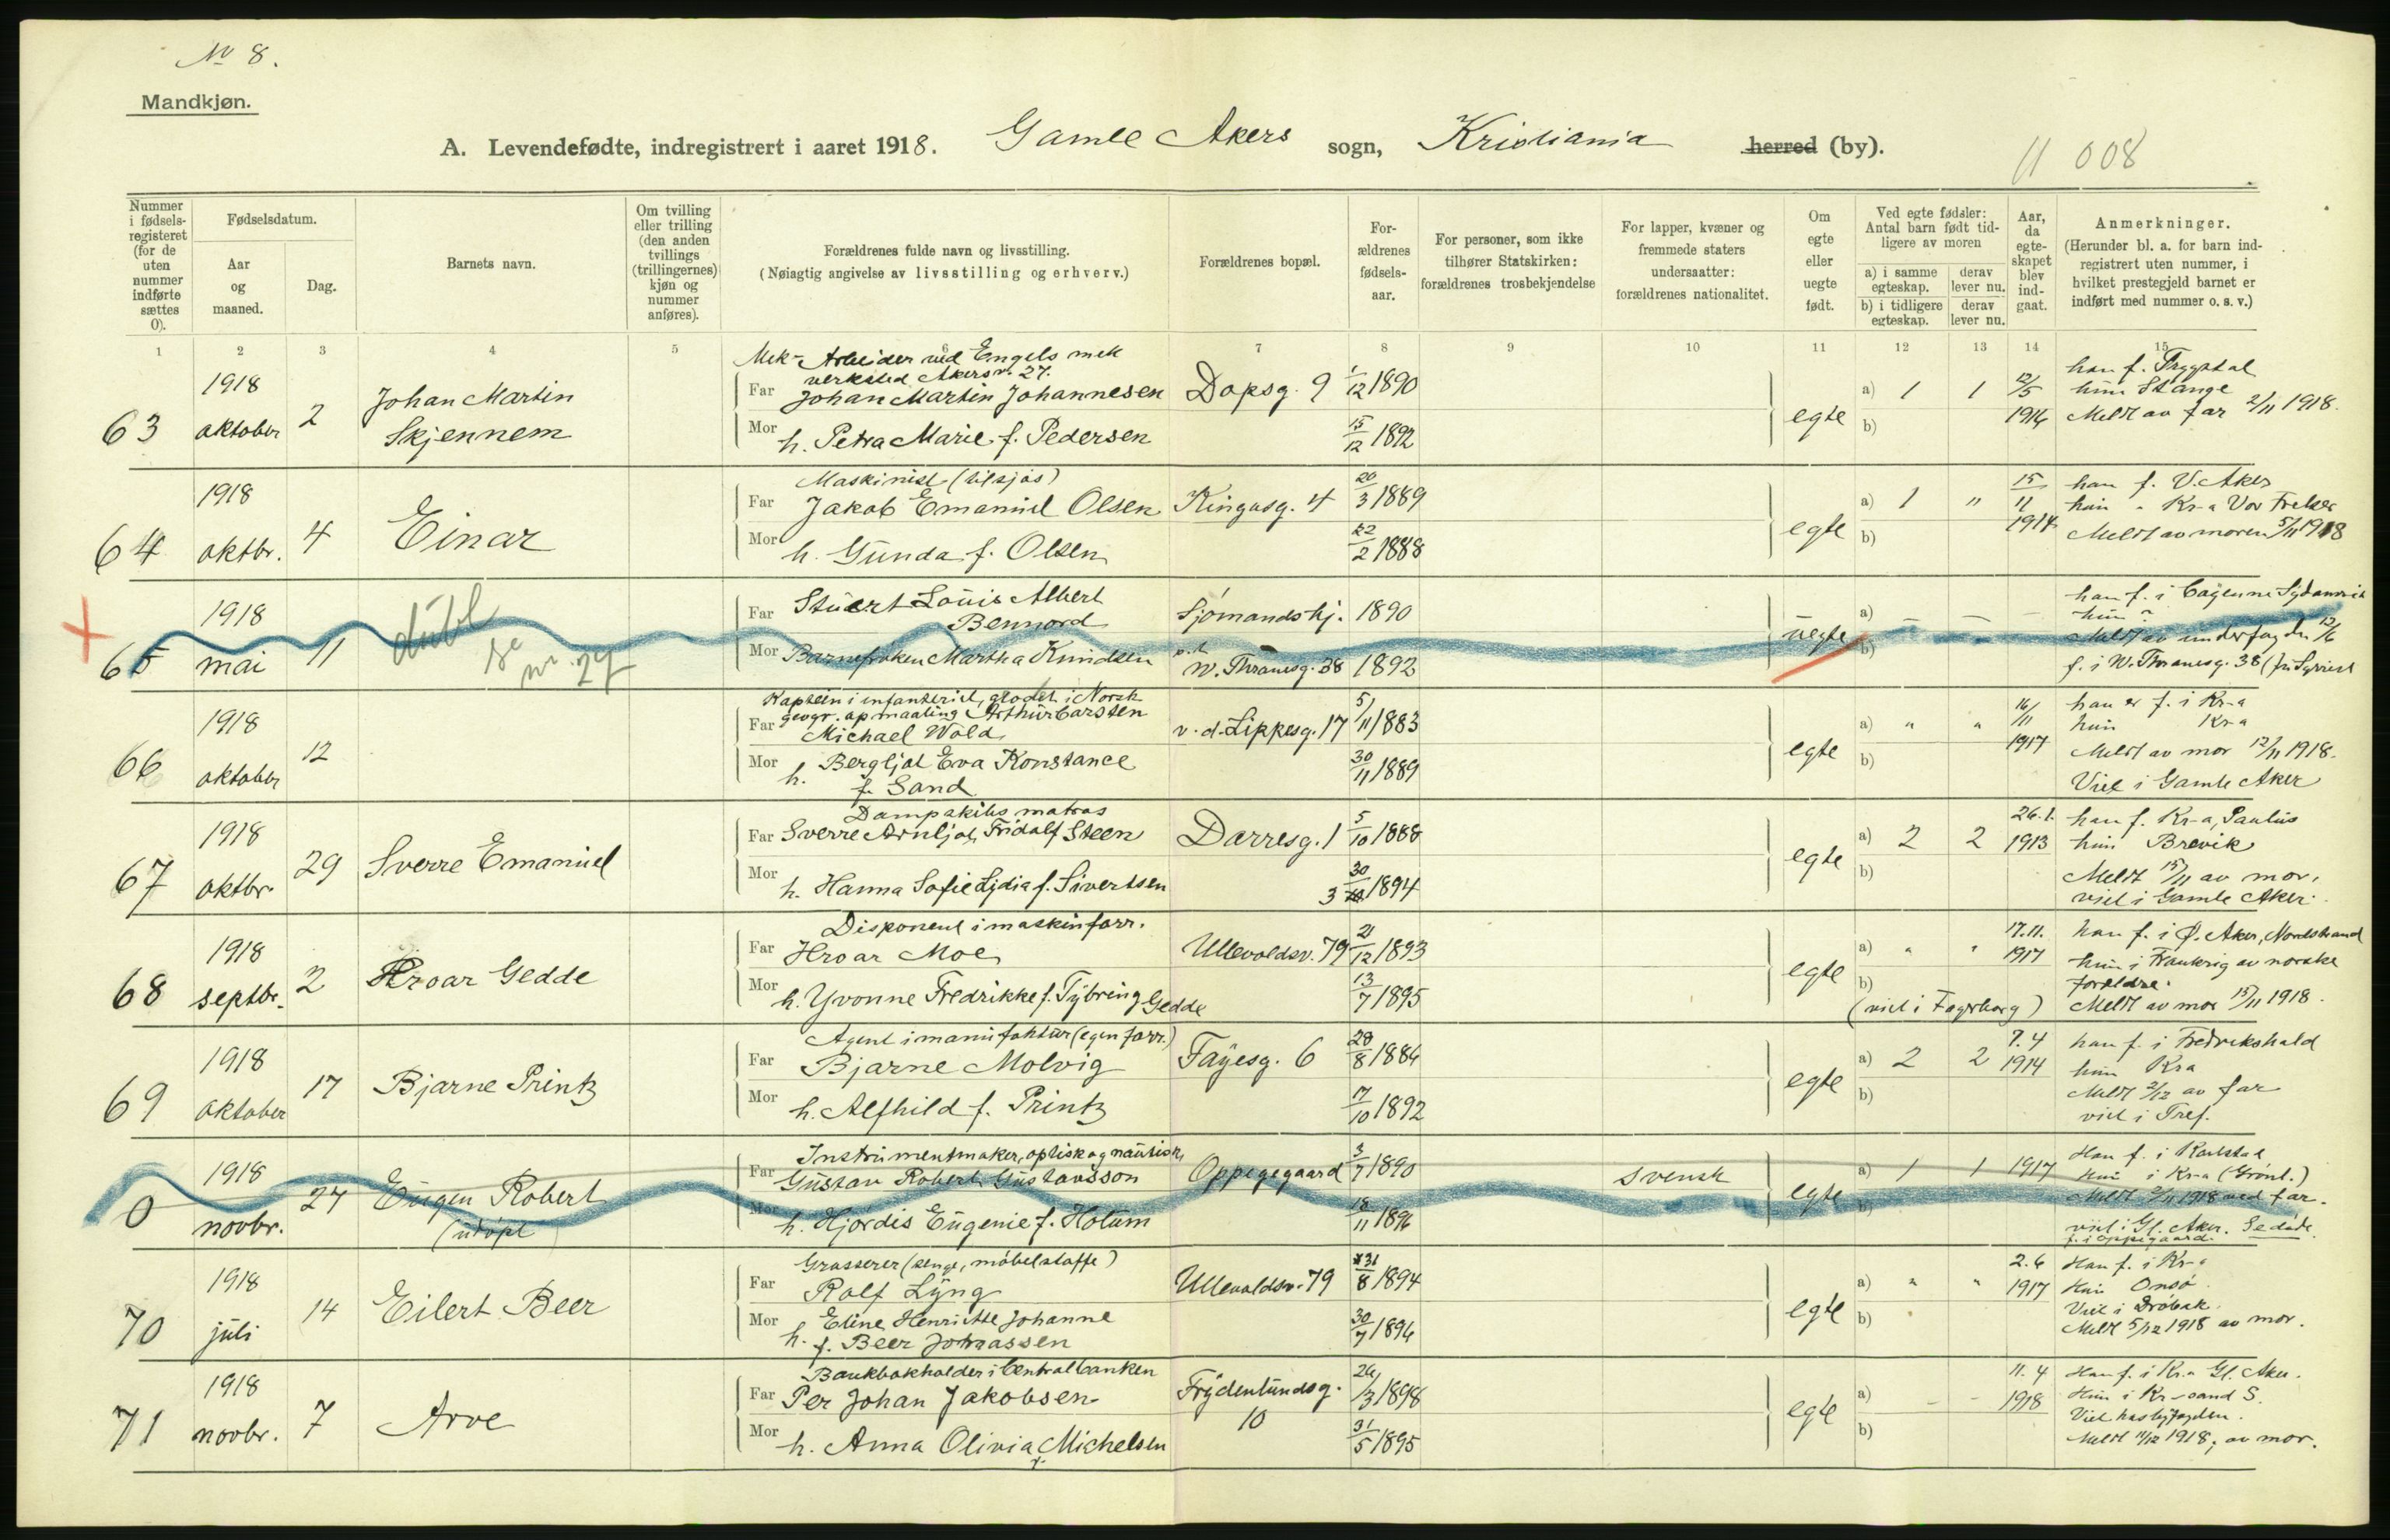 No 8.
Mandkjøn.
A. Levendefødte, indregistrert i aaret 1918. Gamle Akers sogn, Kristiania herred (by).
11 008
Nummer i fødselsregisteret (for de uten nummer indførte sættes 0).
Fødselsdatum.
Aar og maaned.
Dag.
Barnets navn.
Om tvilling eller trilling (den anden tvillings (trillingernes) kjøn og nummer anføres).
Forældrenes fulde navn og livsstilling.
(Nøiagtig angivelse av livsstilling og erhverv.)
Forældrenes bopæl.
Forældrenes fødselsaar.
For personer, som ikke tilhører Statskirken: forældrenes trosbekjendelse
For lapper, kvæner og fremmede staters undersaatter: forældrenes nationalitet.
Om egte eller uegte født.
Ved egte fødsler: Antal barn født tidligere av moren
a) i samme egteskap.
derav lever nu.
b) i tidligere egteskap.
derav lever nu.
Aar, da egteskapet blev indgaat.
Anmerkninger.
(Herunder bl. a. for barn indregistrert uten nummer, i hvilket prestegjeld barnet er indført med nummer o. s. v.)
1 2 3 4 5 6 7 8 9 10 11 12 13 14 15
63 1918 oktober 2 Johan Martin Skjennem
Mek- Arbeider ved Engels mek verksted Akersv. 27.
Far Johan Martin Johannesen Dopsg. 9 1/12 1890
Mor h. Petra Marie f. Pedersen 15/12 1892
egte a) 1 1 12/5 1914 b)
han f. Trygstad
hun Stange
Meldt av far 2/11 1918.
64 1918 oktbr. 4 Einar
Maskinist (tilsjøs)
Far Jakob Emanuel Olsen Kingosg. 4 20/3 1889
Mor h. Gunda f. Olsen 22/2 1888
egte a) 1 " 15/11 1914 b)
han f. V. Aker
hun " Kr-a Vor Frelser
Meldt av moren 5/11 1918
65 1918 mai 11 dubl se nr. 29
Far Stuert Louis Albert Bennord Sjømandshj. 1890
Mor Barnefrøken Martha Knudsen p.t. W. Thranesg. 38 1892
uegte a) — — — b)
han f. i Cayenne Sydamerik
hun ?
Meldt av underfogden 12/6
f. i W. Thranesg. 38
66 1918 oktober 12
Kaptein i infanteriet, i Norsk geogr. opmaaling
Far Arthur Carsten Michael Wold v. d. Lippesg. 17 5/11 1883
Mor h. Bergljot Eva Konstance f. Sand 30/11 1889
egte a) " " 16/11 1917 b)
han er f. i Kr-a
hun Kr-a
Meldt av mor 12/11 1918.
Viet i Gamle Aker
67 1918 oktbr. 29 Sverre Emanuel
Dampskibs matros
Far Sverre Arnljot Fridolf Steen Darresg. 1 5/10 1888
Mor h. Hanna Sofie Lydia f. Sivertsen 30/3 1894
egte a) 2 2 26.1. 1913 b)
han f. Kr-a, Paulus
hun Brevik
Meldt 15/11 av mor.
viet i Gamle Aker.
68 1918 septbr. 2 Hroar Gedde
Disponent i maskinforr.
Far Hroar Moe Ullevoldsv. 79 21/12 1893
Mor h. Yvonne Fredrikke f. Tybring Gedde 13/7 1895
egte a) " " 17.11. 1917 b)
(viet i Fagerborg)
han f. i Ø. Aker, Nordstrand
hun i Frankrig av norske forældre.
Meldt av mor 15/11 1918.
69 1918 oktober 17 Bjarne Printz
Agent i manufaktur (egen forr.)
Far Bjarne Molvig Fayesg. 6 28/8 1886
Mor h. Alfhild f. Printz 17/10 1892
egte a) 2 2 7.4 1914 b)
han f. i Fredrikshald
hun Kra
Meldt 2/12 av far
viet i Tref.
0 1918 novbr. 27 Eugen Robert (utdøpt
Instrumentmaker, optisk og nautisk
Far Gustav Robert Gustavsson Oppegegaard 3/7 1890 svensk
Mor h. Hjordis Eugenie f. Holum 18/11 1896
egte a) 1 1 1917 b)
Han f. i Karlstad
Hun i Kr-a (Grønl.)
Meldt 1918 ved far.
viet i Gl. Aker. Se døde.
f. i Oppegaard.
70 1918 juli 14 Eilert Beer
Grosserer (senge, møbelstoffe)
Far Rolf Lyng Ullevoldsv. 79 31/8 1894
Mor h. Eline Henriette Johanne f. Beer Johnassen 30/7 1896
egte a) " " 2.6 1917 b)
Han f. i Kr-a
Hun Onsø
Viet i Drøbak.
Meldt 5/12 1918 av mor.
71 1918 novbr. 7 Arve
Bankbokholder i Centralbanken
Far Per Johan Jakobsen Frydenlundsg. 10 26/3 1898
Mor h. Anna Olivia f. Michelsen 31/5 1895
egte a) — — 11.4 1918 b)
Han f. i Kr.a Gl. Aker.
Hun i Kr-sand S.
Viet hos byfogden.
Meldt 11/12 1918, av mor.